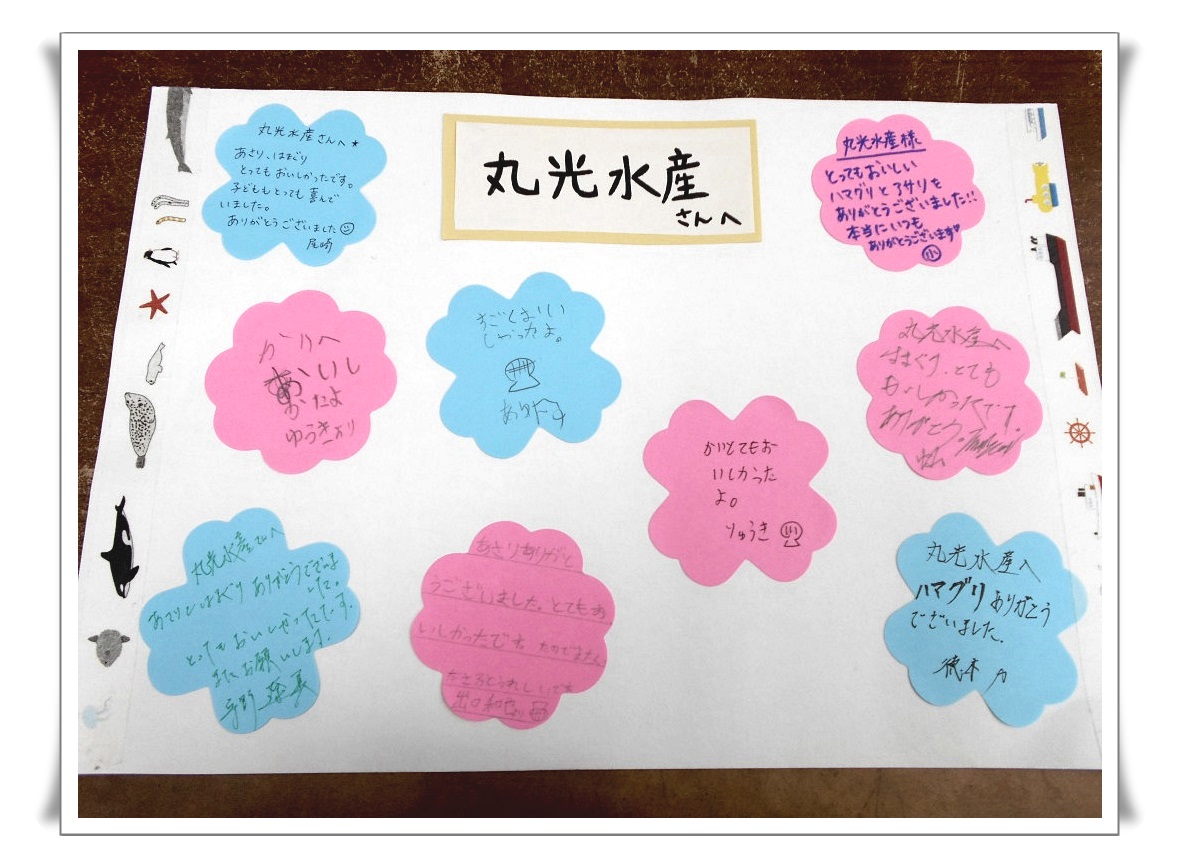 丸光水産
さんへ
丸光水産さんへ★
あさり、はまぐり
とってもおいしかったです。
子どももとっても喜んで
いました。
ありがとうございました
尾崎
丸光水産様
とってもおいしい
ハマグリとアサリを
ありがとうございました!!
本当にいつも
ありがとうございます♡
かいへ
おいし
かたよ
ゆうきより
すごくおいい
しかったよ。
丸光水産へ
はまぐり、とても
おいしかったです。
ありがとう。
かいとてもお
いしかった
よ。
りゅうき
丸光水産さんへ
あさりとはまぐりありがとうございま
した。
とってもおいしかったです。
またお願いします。
あさりありがと
うございました。とてもお
いしかったです。
出口
丸光水産へ
ハマグリありがとう
ございました。
徳本